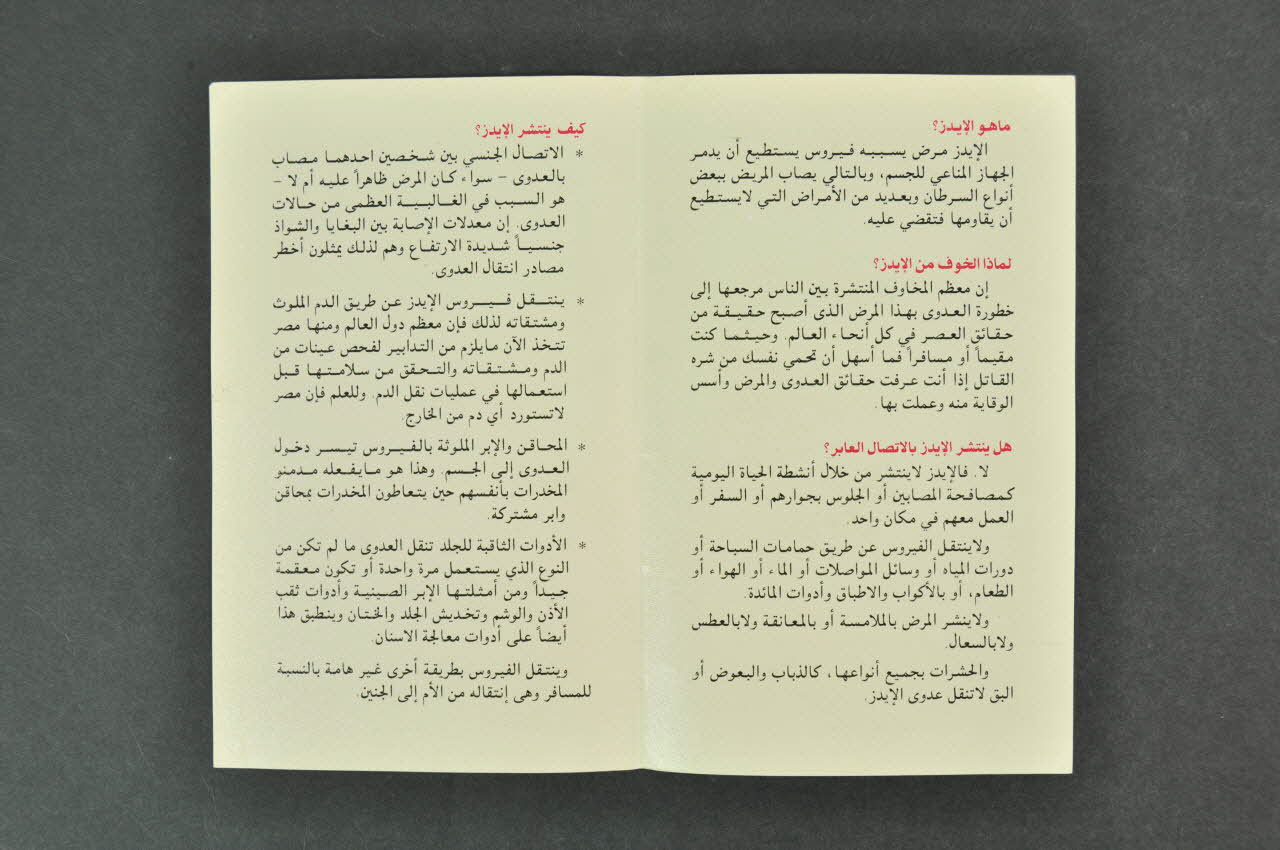 ماهو الإيدز؟
الإيدز مرض يسببه فيروس يستطيع أن يدمر
الجهاز المناعي للجسم، وبالتالي يصاب المريض ببعض
أنواع السرطان وبعديد من الأمراض التي لايستطيع
أن يقاومها فتقضي عليه.
لماذا الخوف من الإيدز؟
إن معظم المخاوف المنتشرة بين الناس مرجعها إلى
خطورة العدوى بهذا المرض الذى أصبح حقيقة من
حقائق العصر في كل أنحاء العالم. وحيثما كنت
مقيماً أو مسافراً فما أسهل أن تحمي نفسك من شره
القاتل إذا أنت عرفت حقائق العدوى والمرض وأسس
الوقاية منه وعملت بها.
هل ينتشر الإيدز بالاتصال العابر؟
لا. فالإيدز لاينتشر من خلال أنشطة الحياة اليومية
كمصافحة المصابين أو الجلوس بجوارهم أو السفر أو
العمل معهم في مكان واحد.
ولاينتقل الفيروس عن طريق حمامات السباحة أو
دورات المياه أو وسائل المواصلات أو الماء أو الهواء أو
الطعام، أو بالأكواب والاطباق وأدوات المائدة.
ولاينشر المرض بالملامسة أو بالمعانقة ولابالعطس
ولابالسعال.
والحشرات بجميع أنواعها، كالذباب والبعوض أو
البق لاتنقل عدوى الإيدز.
كيف ينتشر الإيدز؟
* الاتصال الجنسي بين شخصين احدهما مصاب
بالعدوى – سواء كان المرض ظاهراً عليه أم لا –
هو السبب في الغالبية العظمى من حالات
العدوى. إن معدلات الإصابة بين البغايا والشواذ
جنسياً شديدة الارتفاع وهم لذلك يمثلون أخطر
مصادر انتقال العدوى.
* ينتقل فيروس الإيدز عن طريق الدم الملوث
ومشتقاته لذلك فإن معظم دول العالم ومنها مصر
تتخذ الآن مايلزم من التدابير لفحص عينات من
الدم ومشتقاته والتحقق من سلامتها قبل
استعمالها في عمليات نقل الدم. وللعلم فإن مصر
لاتستورد أي دم من الخارج.
* المحاقن والإبر الملوثة بالفيروس تيسر دخول
العدوى إلى الجسم. وهذا هو مايفعله مدمنو
المخدرات بأنفسهم حين يتعاطون المخدرات بمحاقن
وابر مشتركة.
* الأدوات الثاقبة للجلد تنقل العدوى ما لم تكن من
النوع الذي يستعمل مرة واحدة أو تكون معقمة
جيداً ومن أمثلتها الإبر الصينية وأدوات ثقب
الأذن والوشم وتخديش الجلد والختان وينطبق هذا
أيضاً على أدوات معالجة الاسنان.
وينتقل الفيروس بطريقة أخرى غير هامة بالنسبة
للمسافر وهى إنتقاله من الأم إلى الجنين.